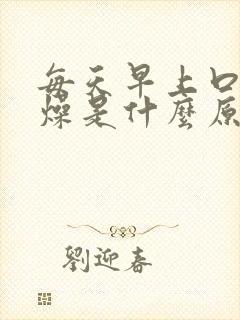 每天早上口
燥是什麼原
劉迎春